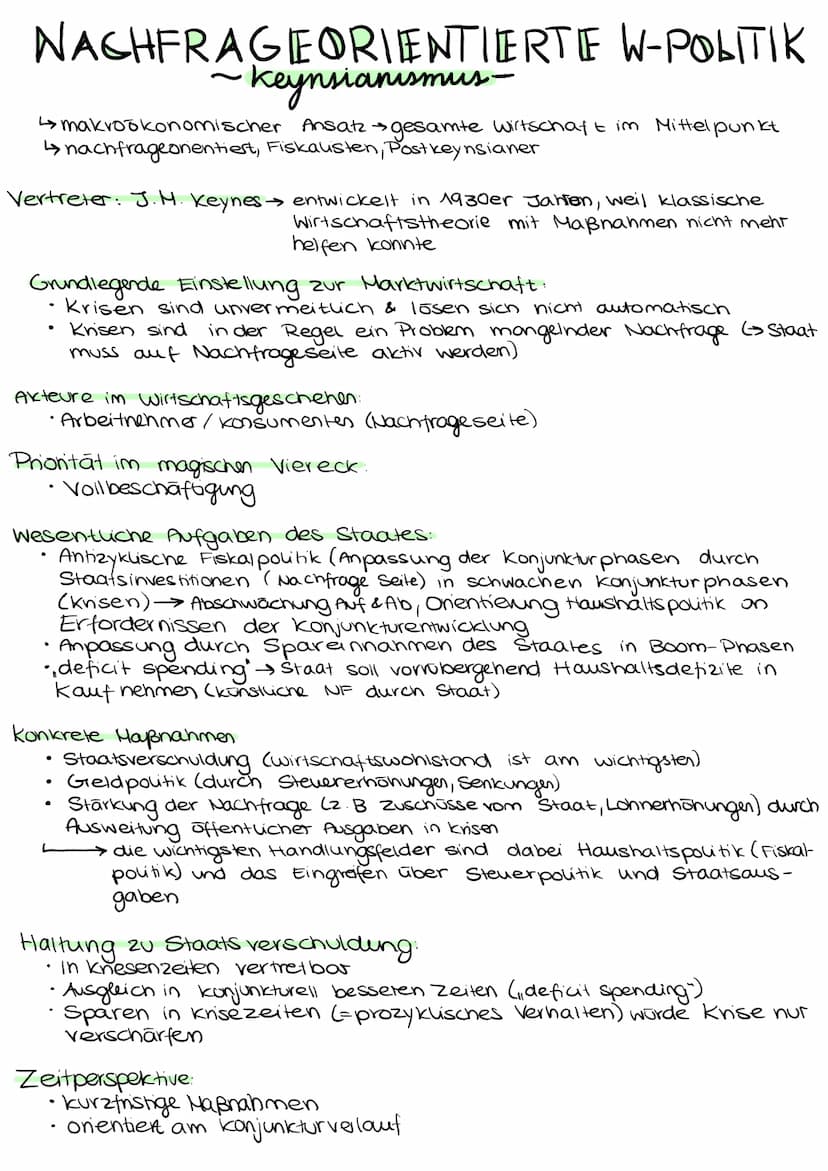 NACHFRAGEORIENTIERTE W-POLITIK
~ Keynsianismus -
↳ makroökonomischer Ansatz → gesamte Wirtschaft im Mittelpunkt
↳ nachfrageorientiert, Fiskalisten, Postkeynsianer
Vertreter: J.M. Keynes → entwickelt in 1930er Jahren, weil klassische
Wirtschaftstheorie mit Maßnahmen nicht mehr
helfen konnte
Grundlegende Einstellung zur Marktwirtschaft:
· Krisen sind unvermeitlich & lösen sich nicht automatisch
· Krisen sind in der Regel ein Problem mangelnder Nachfrage (→ Staat
muss auf Nachfrageseite aktiv werden)
Akteure im Wirtschaftsgeschehen:
· Arbeitnehmer / Konsumenten (Nachfrageseite)
Priorität im magischen Viereck:
· Vollbeschäftigung
Wesentliche Aufgaben des Staates:
· Antizyklische Fiskalpolitik (Anpassung der Konjunkturphasen durch
Staatsinvestitionen (Nachfrage Seite) in schwachen Konjunkturphasen
(Krisen) → Abschwächung Auf & Ab, Orientierung Haushaltspolitik an
Erfordernissen der Konjunkturentwicklung
· Anpassung durch Spareinnahmen des Staates in Boom-Phasen
· „deficit spending" → Staat soll vorrübergehend Haushaltsdefizite in
Kauf nehmen (künstliche NF durch Staat)
Konkrete Maßnahmen
· Staatsverschuldung (wirtschaftswohlstand ist am wichtigsten)
· Geldpolitik (durch Steuererhöhungen, Senkungen)
· Stärkung der Nachfrage (z.B Zuschüsse vom Staat, Lohnerhöhungen) durch
Ausweitung öffentlicher Ausgaben in krisen
→ die wichtigsten Handlungsfelder sind dabei Haushaltspolitik (Fiskal-
politik) und das Eingreifen über Steuerpolitik und Staatsaus-
gaben
Haltung zu Staatsverschuldung:
· In Kriesenzeiten vertretbar
· Ausgleich in konjunkturell besseren Zeiten („deficit spending")
· Sparen in Krisezeiten (= prozyklisches Verhalten) würde Krise nur
verschärfen
Zeitperspektive:
· kurzfristige Maßnahmen
· orientiert am Konjunkturverlauf